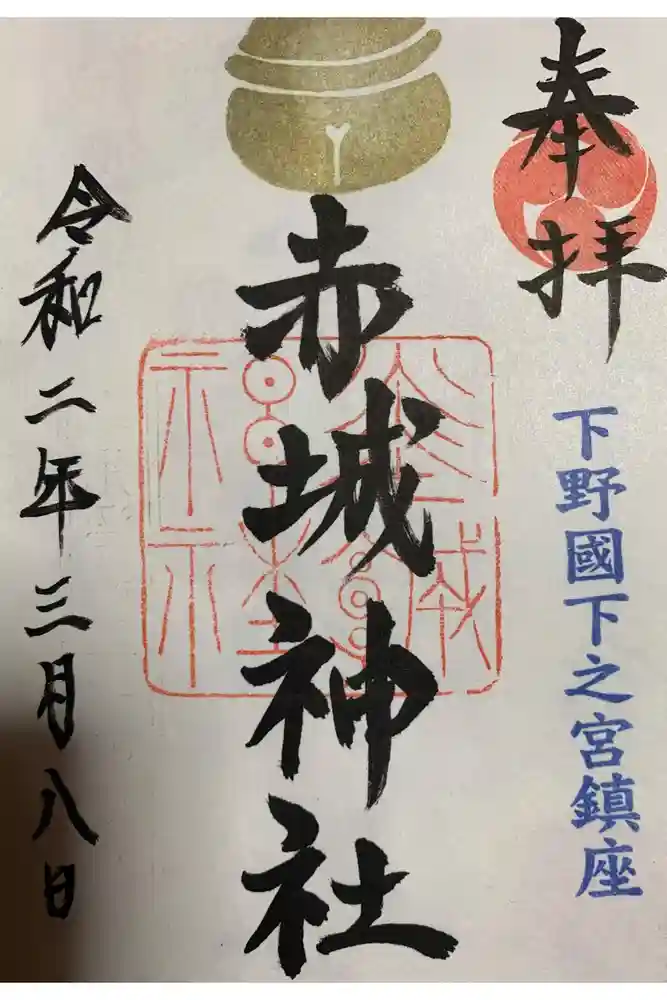 奉拝
下野國下之宮鎮座
赤城神社
令和二年三月八日